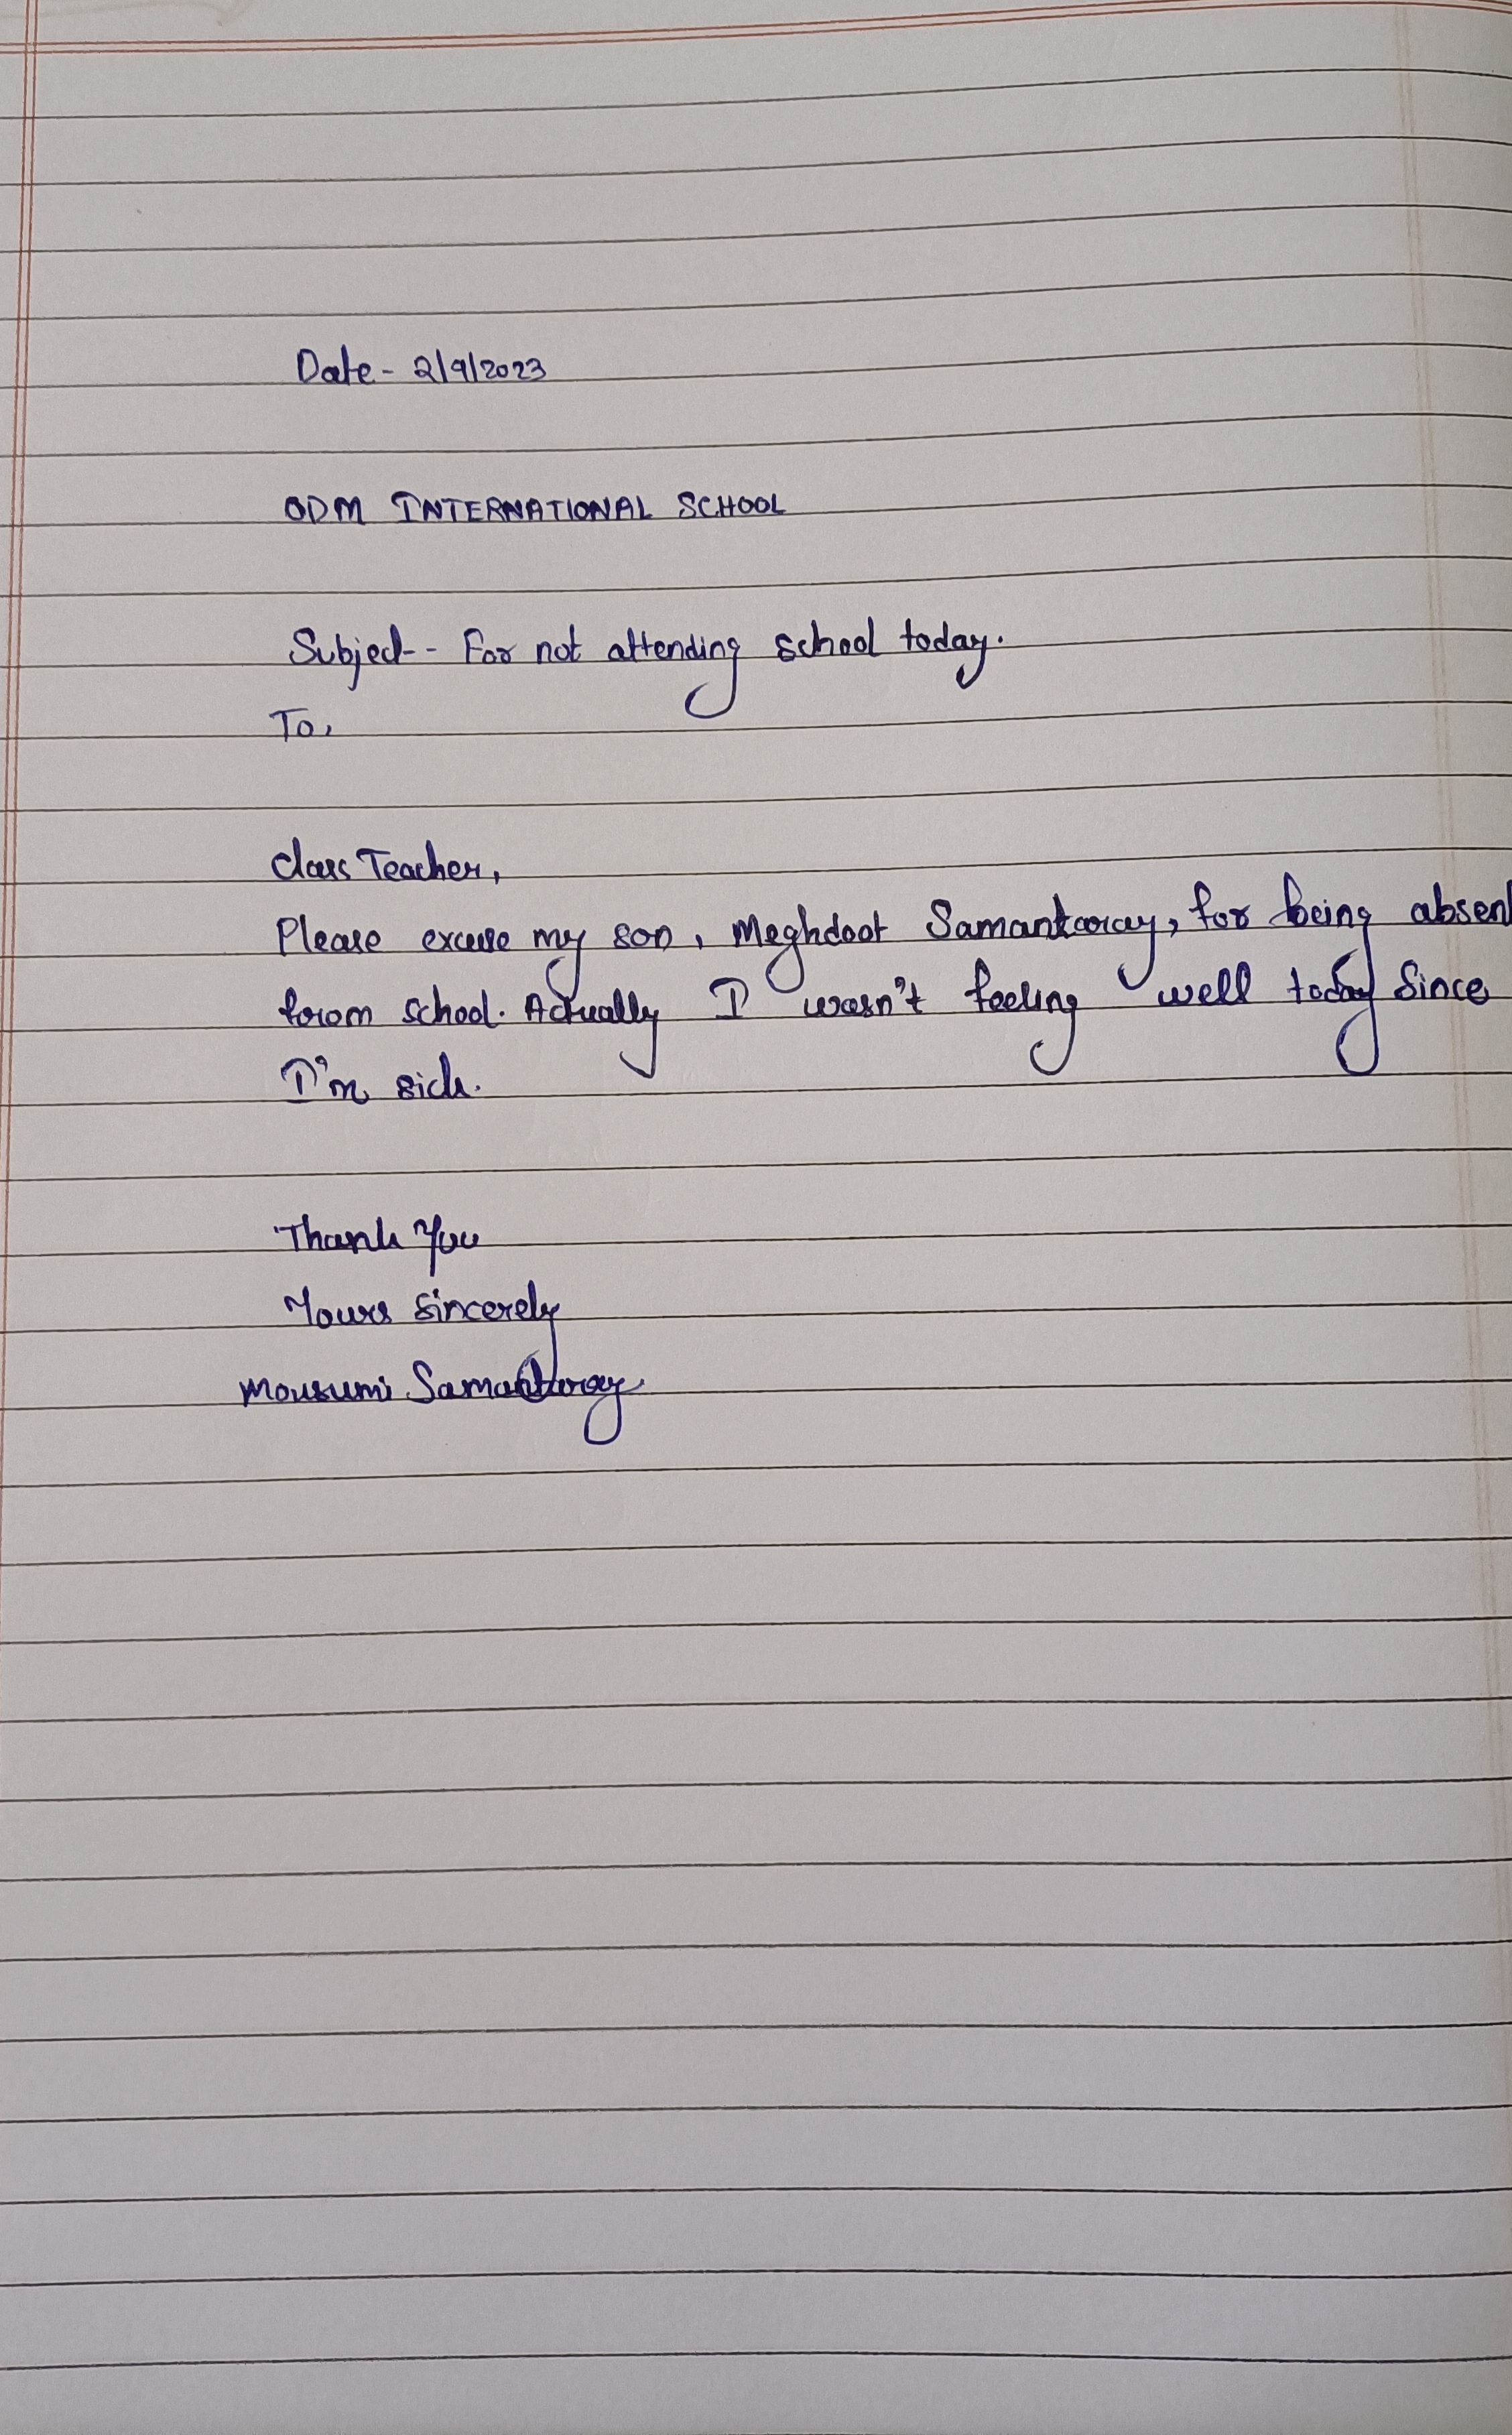 Date - 2/9/2023
ODM INTERNATIONAL SCHOOL
Subject - For not attending school today.
To,
Class Teacher,
Please excuse my son, Meghdoot Samantaray, for being absent
from school. Actually I wasn't feeling well today since
I'm sick.
Thank You
Yours sincerely
Mousumi Samantaray